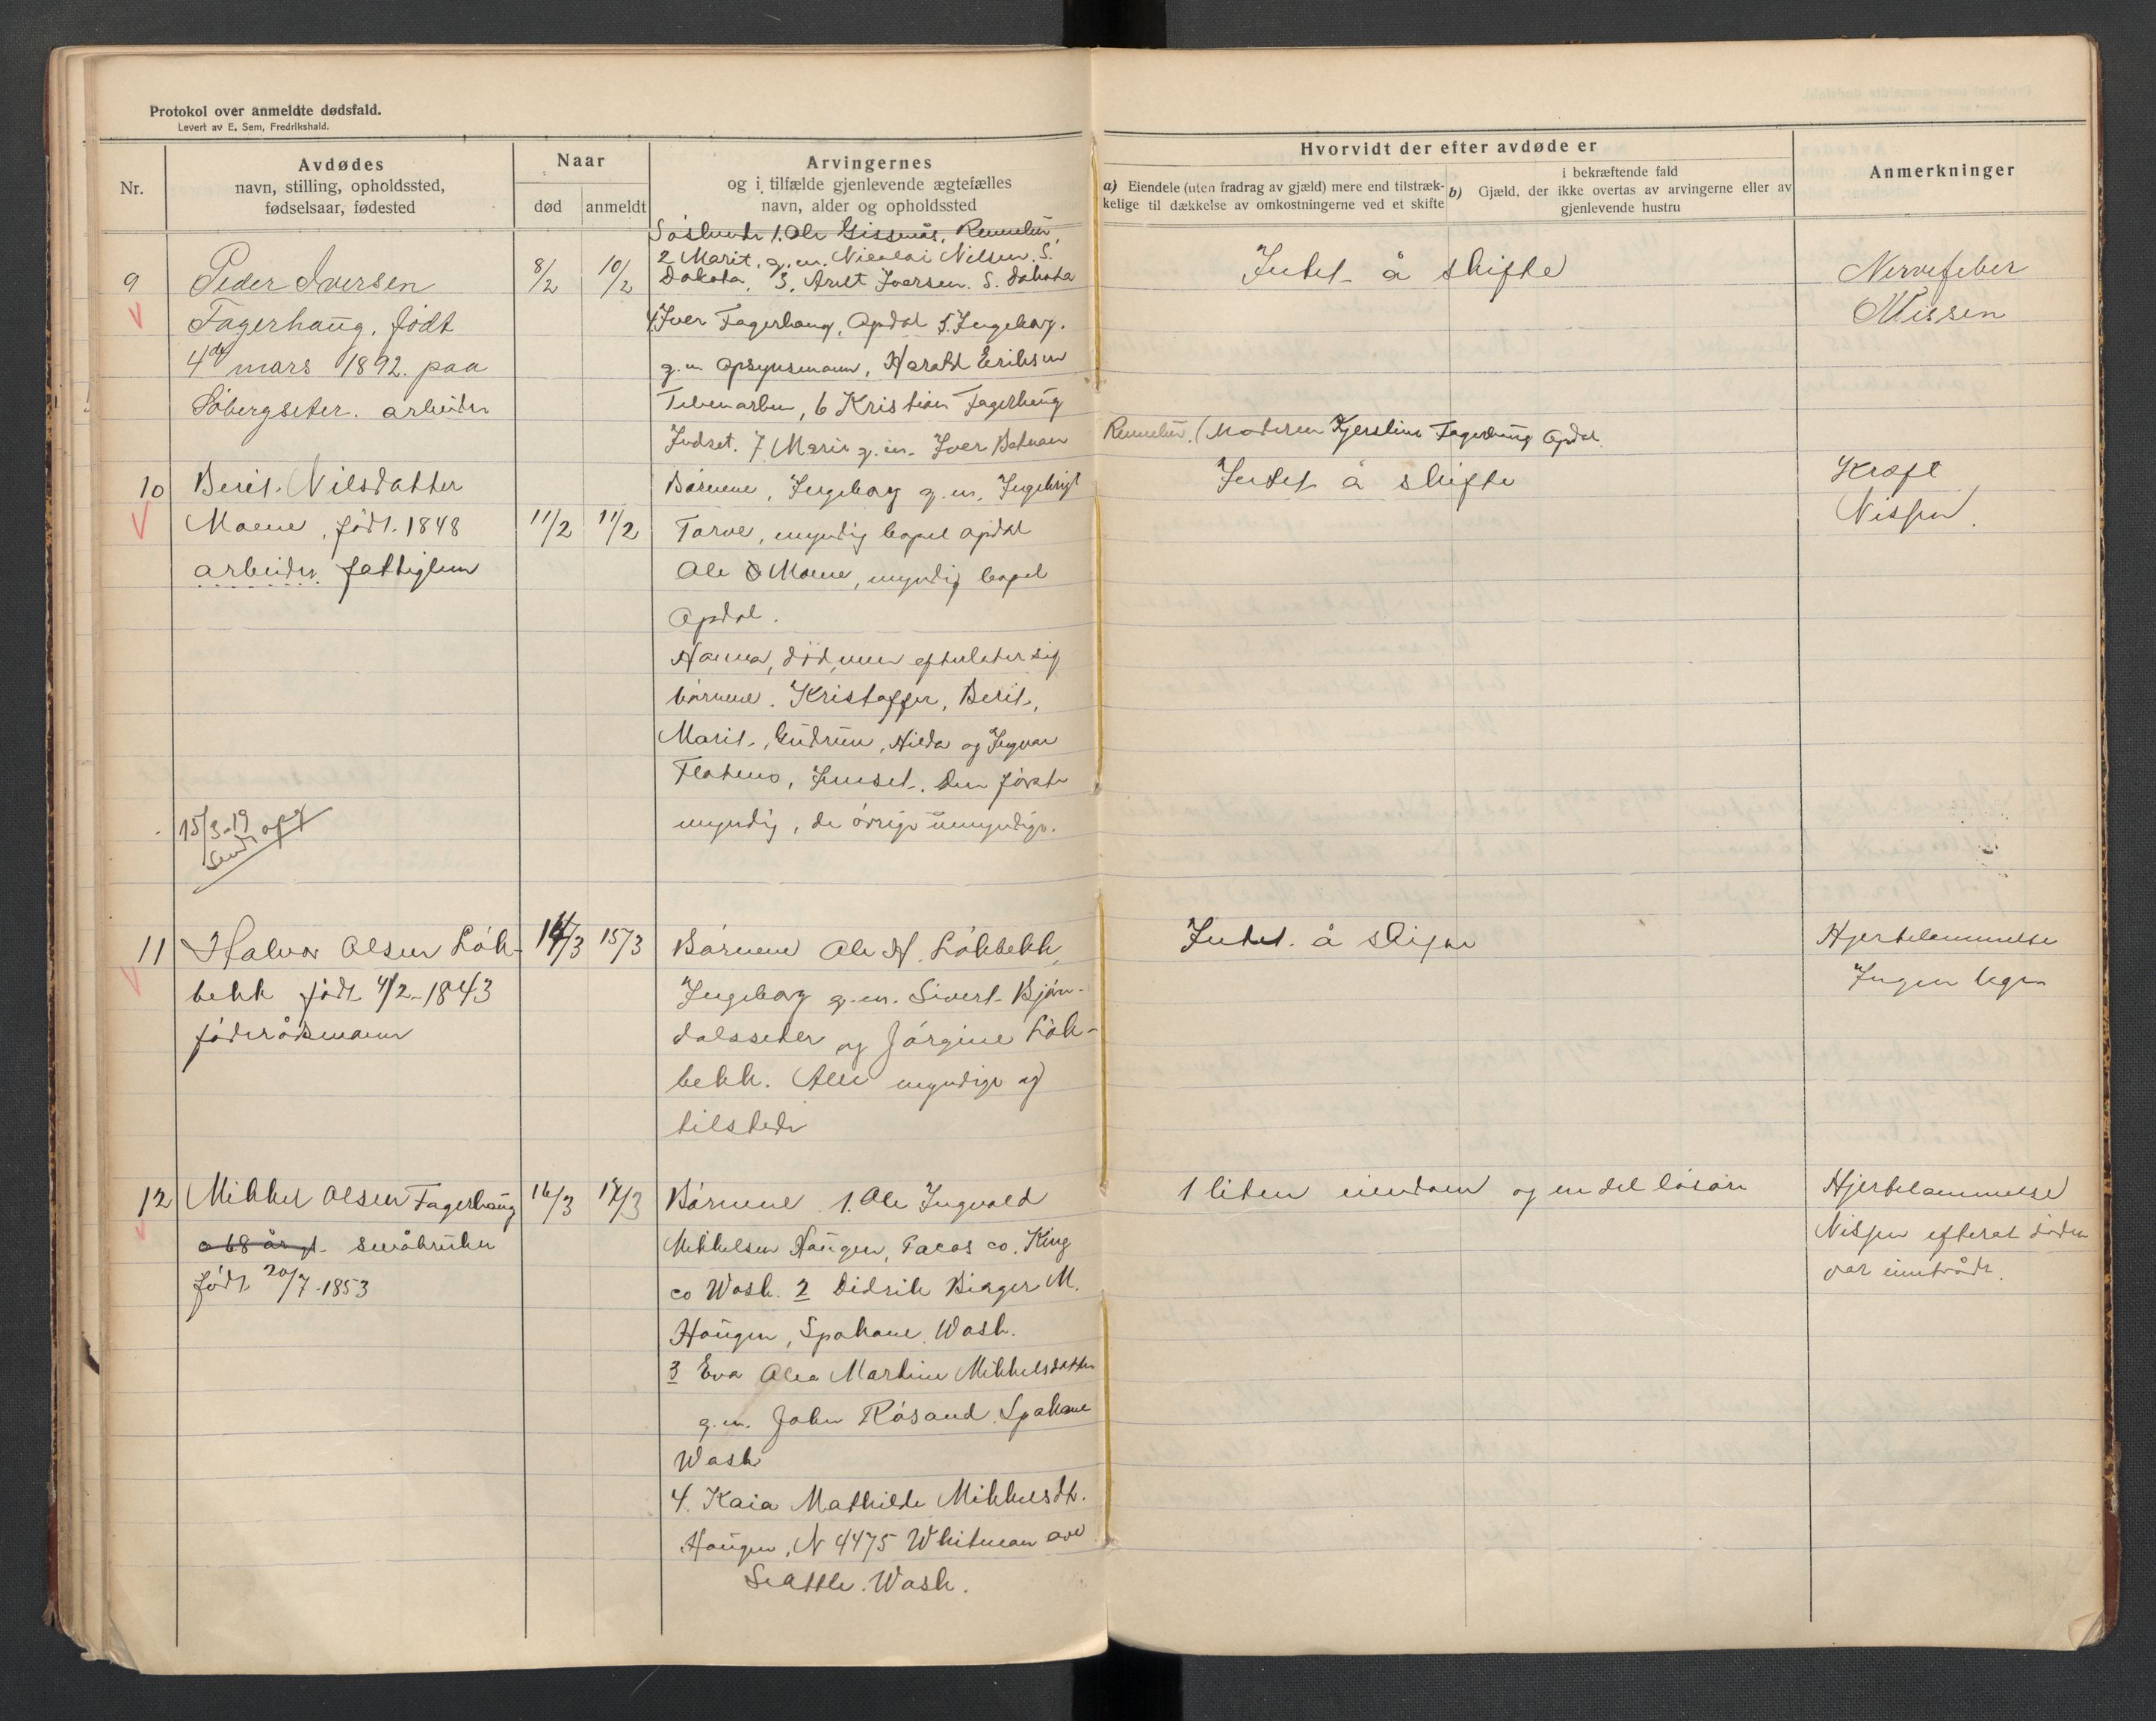 Protokol over anmeldte dødsfald.
Levert av E. Sem, Fredrikshald.
Nr.
Avdødes
navn, stilling, opholdssted,
fødselsaar, fødested
Naar
død
anmeldt
Arvingernes
og i tilfælde gjenlevende ægtefælles
navn, alder og opholdssted
Hvorvidt der efter avdøde er
a) Eiendele (uten fradrag av gjæld) mere end tilstræk-
kelige til dækkelse av omkostningerne ved et skifte
i bekræftende fald
b) Gjæld, der ikke overtas av arvingerne eller av
gjenlevende hustru
Anmerkninger
9
Peder Iversen
Fagerhaug, født
4de mars 1892. paa
Søbergseter. arbeider
8/2
10/2
Søskende 1. Ole Gissnås, Rennebu,
2 Marit, g.m. Nicolai Nilsen. S.
Dakota, 3, Arnt Iversen. S. Dakota
4 Iver Fagerhaug, Opdal 5. Ingeborg.
g.m opsynsmann, Harald Eriksen
6 Kristian Fagerhaug
Indset. 7 Marie g.m. Iver
Rennebu. (Moderen Kjerstine Fagerhaug Opdal
Intet å skifte
Nervefeber
Nissen
10
Berit Nilsdatter
Moene, født. 1848
arbeider. fattiglem
11/2
11/2
Børnene, Ingeborg g.m. Ingebrigt
Torve, myndig bopel Opdal
Ole O Moene, myndig bopel
Opdal.
Hanna, død, men efterlater sig
børnene. Kristoffer, Berit,
Marit, Gudrun, Hilda og Ingvar
Flotmo, Innset. Den første
myndig, de øvrige umyndige.
Intet å skifte
Kræft
Nissen.
15/3-19
Sendt opg
11
Halvor Olsen Løk-
bekk født 4/2-1843
føderådsmann
14/3
15/3
Børnene Ole H. Løkbekk,
Ingeborg g.m. Sivert Bjørn-
dalsseter og Jørgine Løk-
bekk. Alle myndige og
tilstede
Intet å skifte
Hjertelammelse
Ingen lege
12
Mikkel Olsen Fagerhaug
o 68 år gl. småbruker
født 20/7-1853
16/3
17/3
Børnene 1. Ole Ingvald
Mikkelsen Haugen, Pacos co. King
co Wash. 2 Didrik Birger M.
Haugen, Spokane Wash.
3 Eva Olea Martine Mikkelsdatter
g.m. John Røsand, Spokane
Wash
4. Kaia Mathilde Mikkelsdt.
Haugen, N 4475 Whitman ave
Seattle. Wash.
1 liten eiendom og en del løsøre
Hjertelammelse
Nissen efterat døden
var inntrådt.